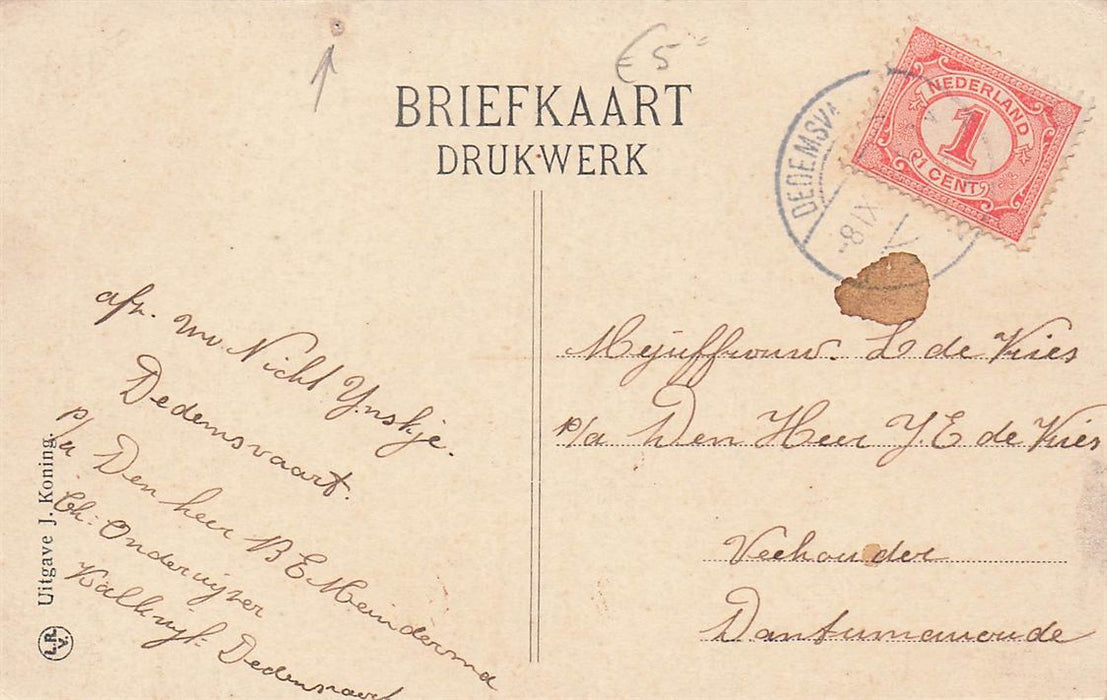 € 5
BRIEFKAART
DRUKWERK
NEDERLAND
1
1 CENT
DEDEMSVA
8 IX
afz. uw Nicht Ynskje.
Dedemsvaart.
p/a Den heer B E Meindersma
Ch: Onderwijzer
Dedemsvaart
Mejuffrouw. L de Vries
p/a Den Heer J. E de Vries
Veehouder
Dantumawoude
Uitgave J. Koning.
L.R.
V.